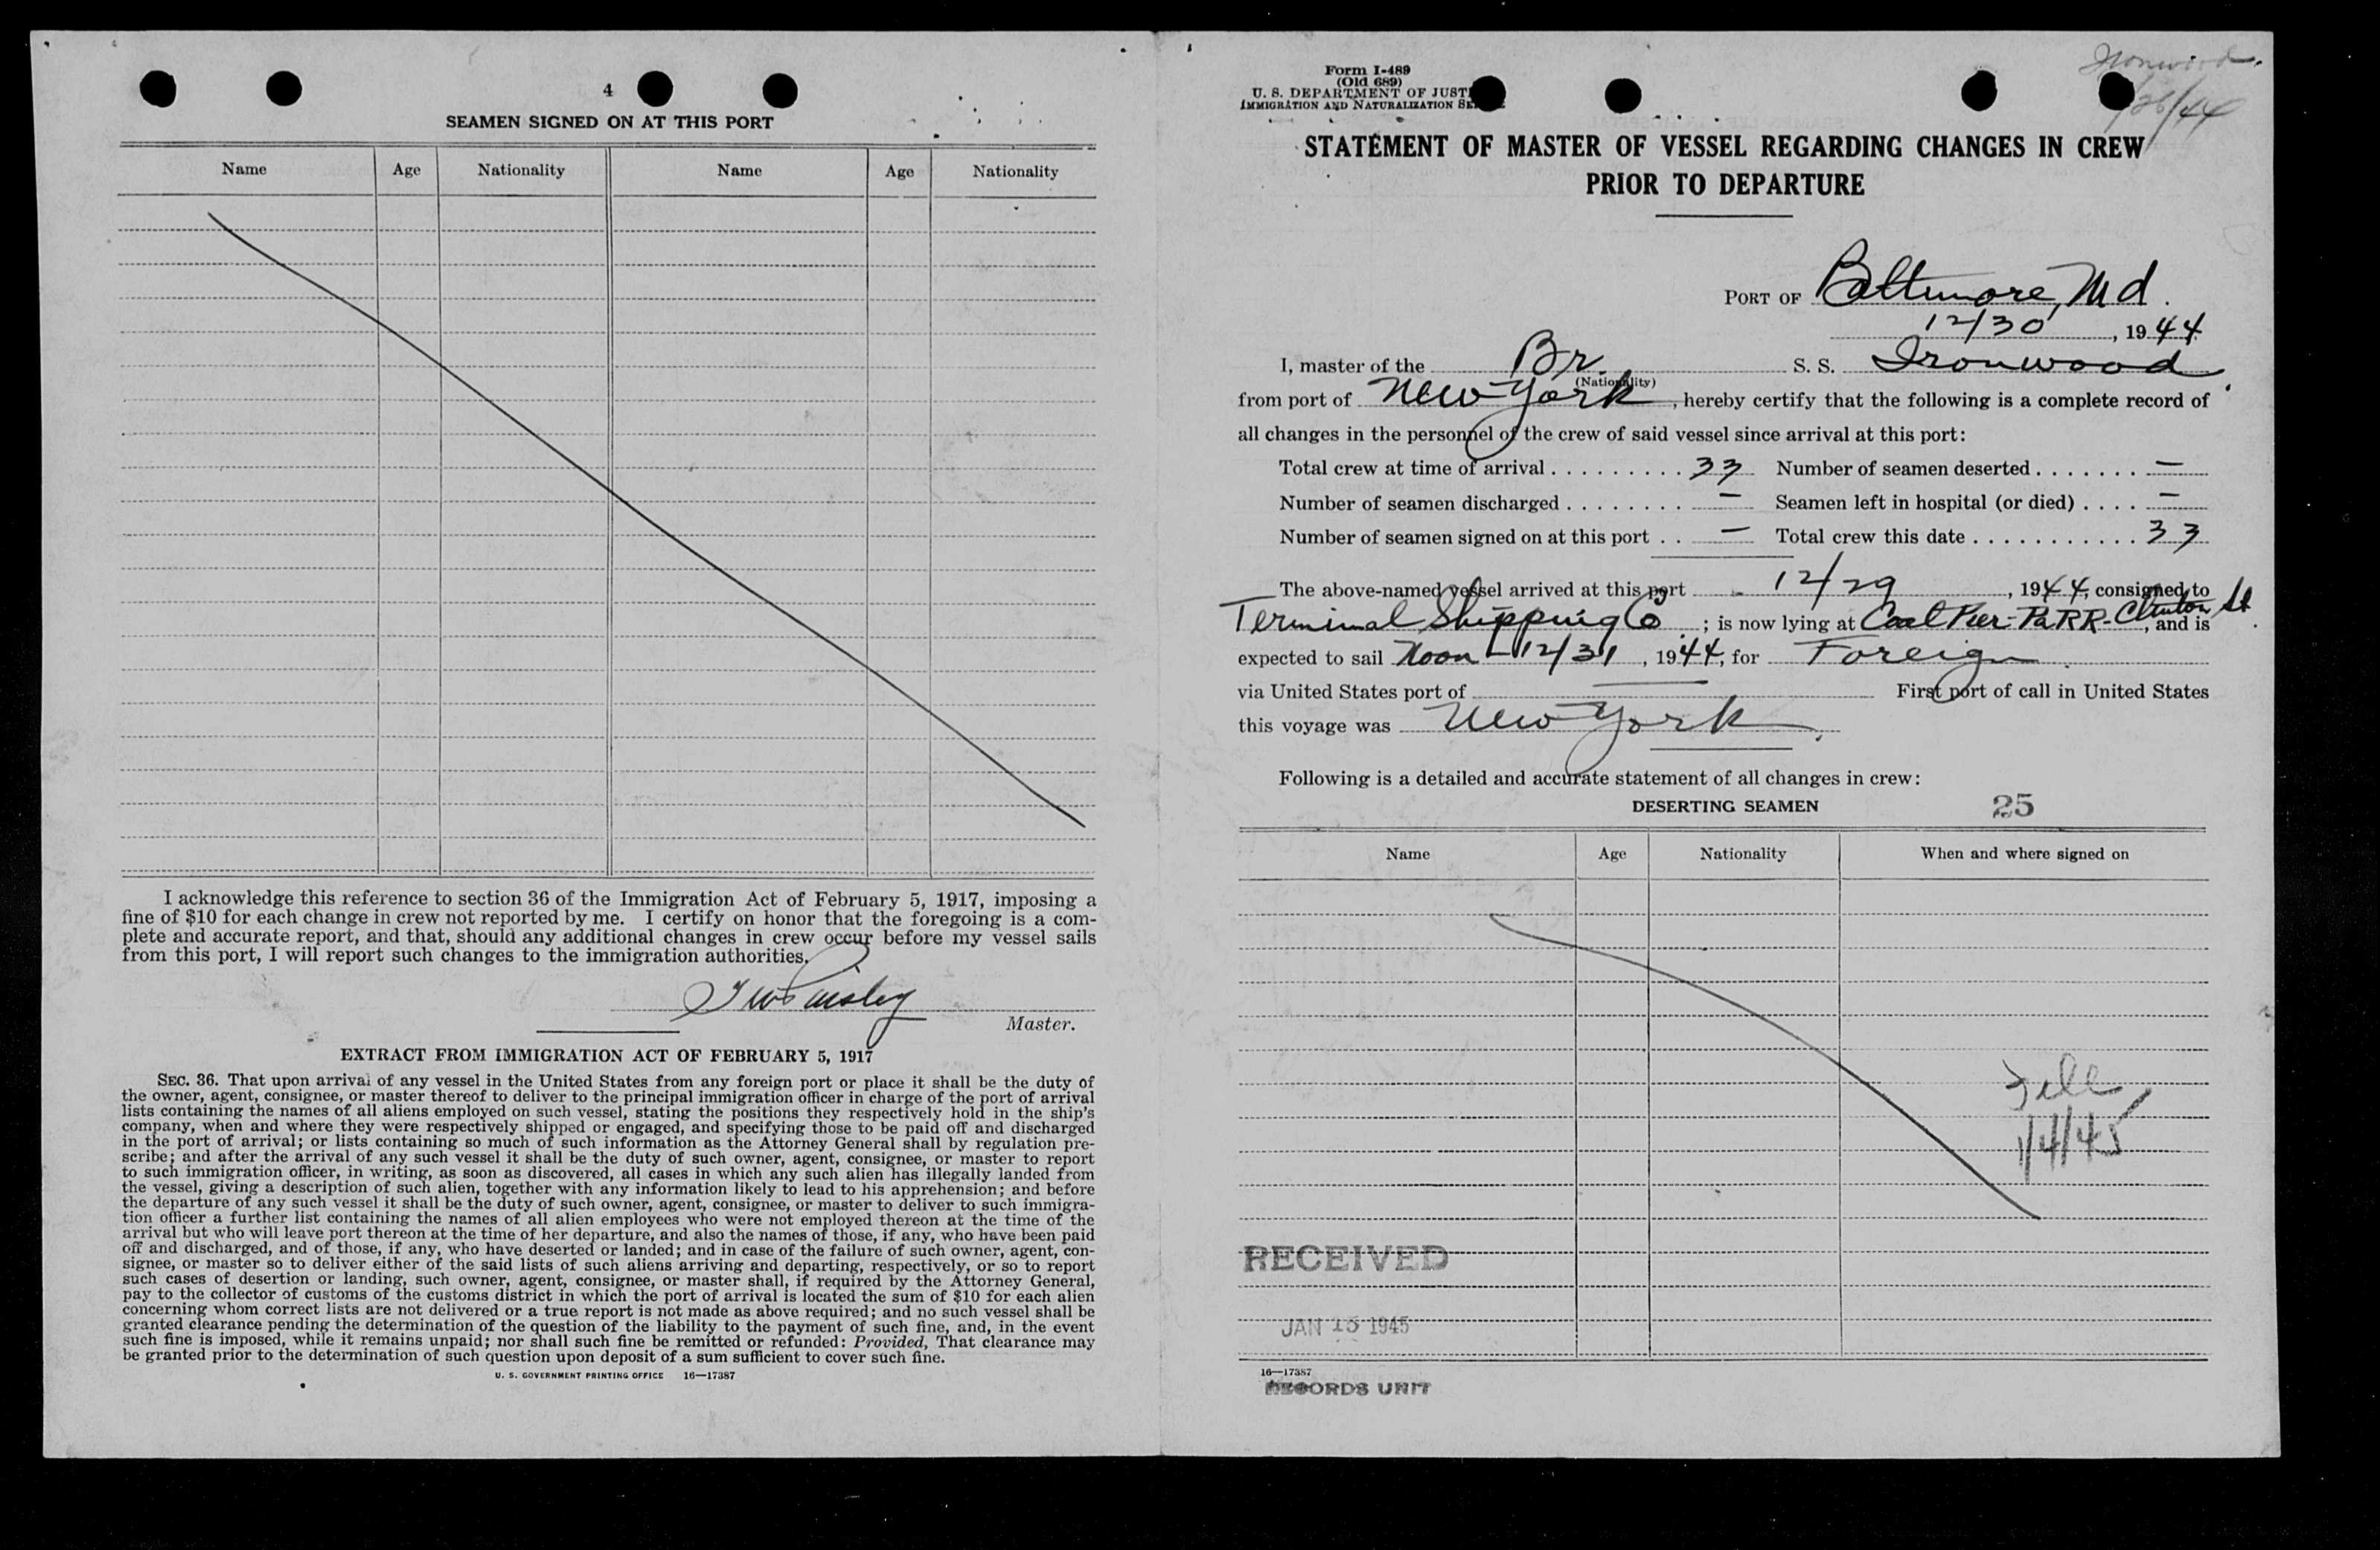 4
SEAMEN SIGNED ON AT THIS PORT
Name Age Nationality Name Age Nationality
I acknowledge this reference to section 36 of the Immigration Act of February 5, 1917, imposing a
fine of $10 for each change in crew not reported by me. I certify on honor that the foregoing is a com-
plete and accurate report, and that, should any additional changes in crew occur before my vessel sails
from this port, I will report such changes to the immigration authorities.
Master.
EXTRACT FROM IMMIGRATION ACT OF FEBRUARY 5, 1917
SEC. 36. That upon arrival of any vessel in the United States from any foreign port or place it shall be the duty of
the owner, agent, consignee, or master thereof to deliver to the principal immigration officer in charge of the port of arrival
lists containing the names of all aliens employed on such vessel, stating the positions they respectively hold in the ship's
company, when and where they were respectively shipped or engaged, and specifying those to be paid off and discharged
in the port of arrival; or lists containing so much of such information as the Attorney General shall by regulation pre-
scribe; and after the arrival of any such vessel it shall be the duty of such owner, agent, consignee, or master to report
to such immigration officer, in writing, as soon as discovered, all cases in which any such alien has illegally landed from
the vessel, giving a description of such alien, together with any information likely to lead to his apprehension; and before
the departure of any such vessel it shall be the duty of such owner, agent, consignee, or master to deliver to such immigra-
tion officer a further list containing the names of all alien employees who were not employed thereon at the time of the
arrival but who will leave port thereon at the time of her departure, and also the names of those, if any, who have been paid
off and discharged, and of those, if any, who have deserted or landed; and in case of the failure of such owner, agent, con-
signee, or master so to deliver either of the said lists of such aliens arriving and departing, respectively, or so to report
such cases of desertion or landing, such owner, agent, consignee, or master shall, if required by the Attorney General,
pay to the collector of customs of the customs district in which the port of arrival is located the sum of $10 for each alien
concerning whom correct lists are not delivered or a true report is not made as above required; and no such vessel shall be
granted clearance pending the determination of the question of the liability to the payment of such fine, and, in the event
such fine is imposed, while it remains unpaid; nor shall such fine be remitted or refunded: Provided, That clearance may
be granted prior to the determination of such question upon deposit of a sum sufficient to cover such fine.
U. S. GOVERNMENT PRINTING OFFICE 16—17387
Form I-489
(Old 689)
U. S. DEPARTMENT OF JUST
IMMIGRATION AND NATURALIZATION SE
Ironwood.
STATEMENT OF MASTER OF VESSEL REGARDING CHANGES IN CREW
PRIOR TO DEPARTURE
PORT OF Baltimore, Md.
12/30, 1944
I, master of the Br. S. S. Ironwood
(Nationality)
from port of New York, hereby certify that the following is a complete record of
all changes in the personnel of the crew of said vessel since arrival at this port:
Total crew at time of arrival . . . . . . . . . 33 Number of seamen deserted . . . . . . . —
Number of seamen discharged . . . . . . . . — Seamen left in hospital (or died) . . . . —
Number of seamen signed on at this port . . — Total crew this date . . . . . . . . . . . . 33
The above-named vessel arrived at this port 12/29, 1944, consigned to
Terminal Shipping Co; is now lying at Coal Pier-PaRR-Clinton St, and is
expected to sail Noon - 12/31, 1944, for Foreign
via United States port of — First port of call in United States
this voyage was New York.
Following is a detailed and accurate statement of all changes in crew:
DESERTING SEAMEN 25
Name Age Nationality When and where signed on
1/4/45
RECEIVED
JAN 1945
16—17387
RECORDS UNIT